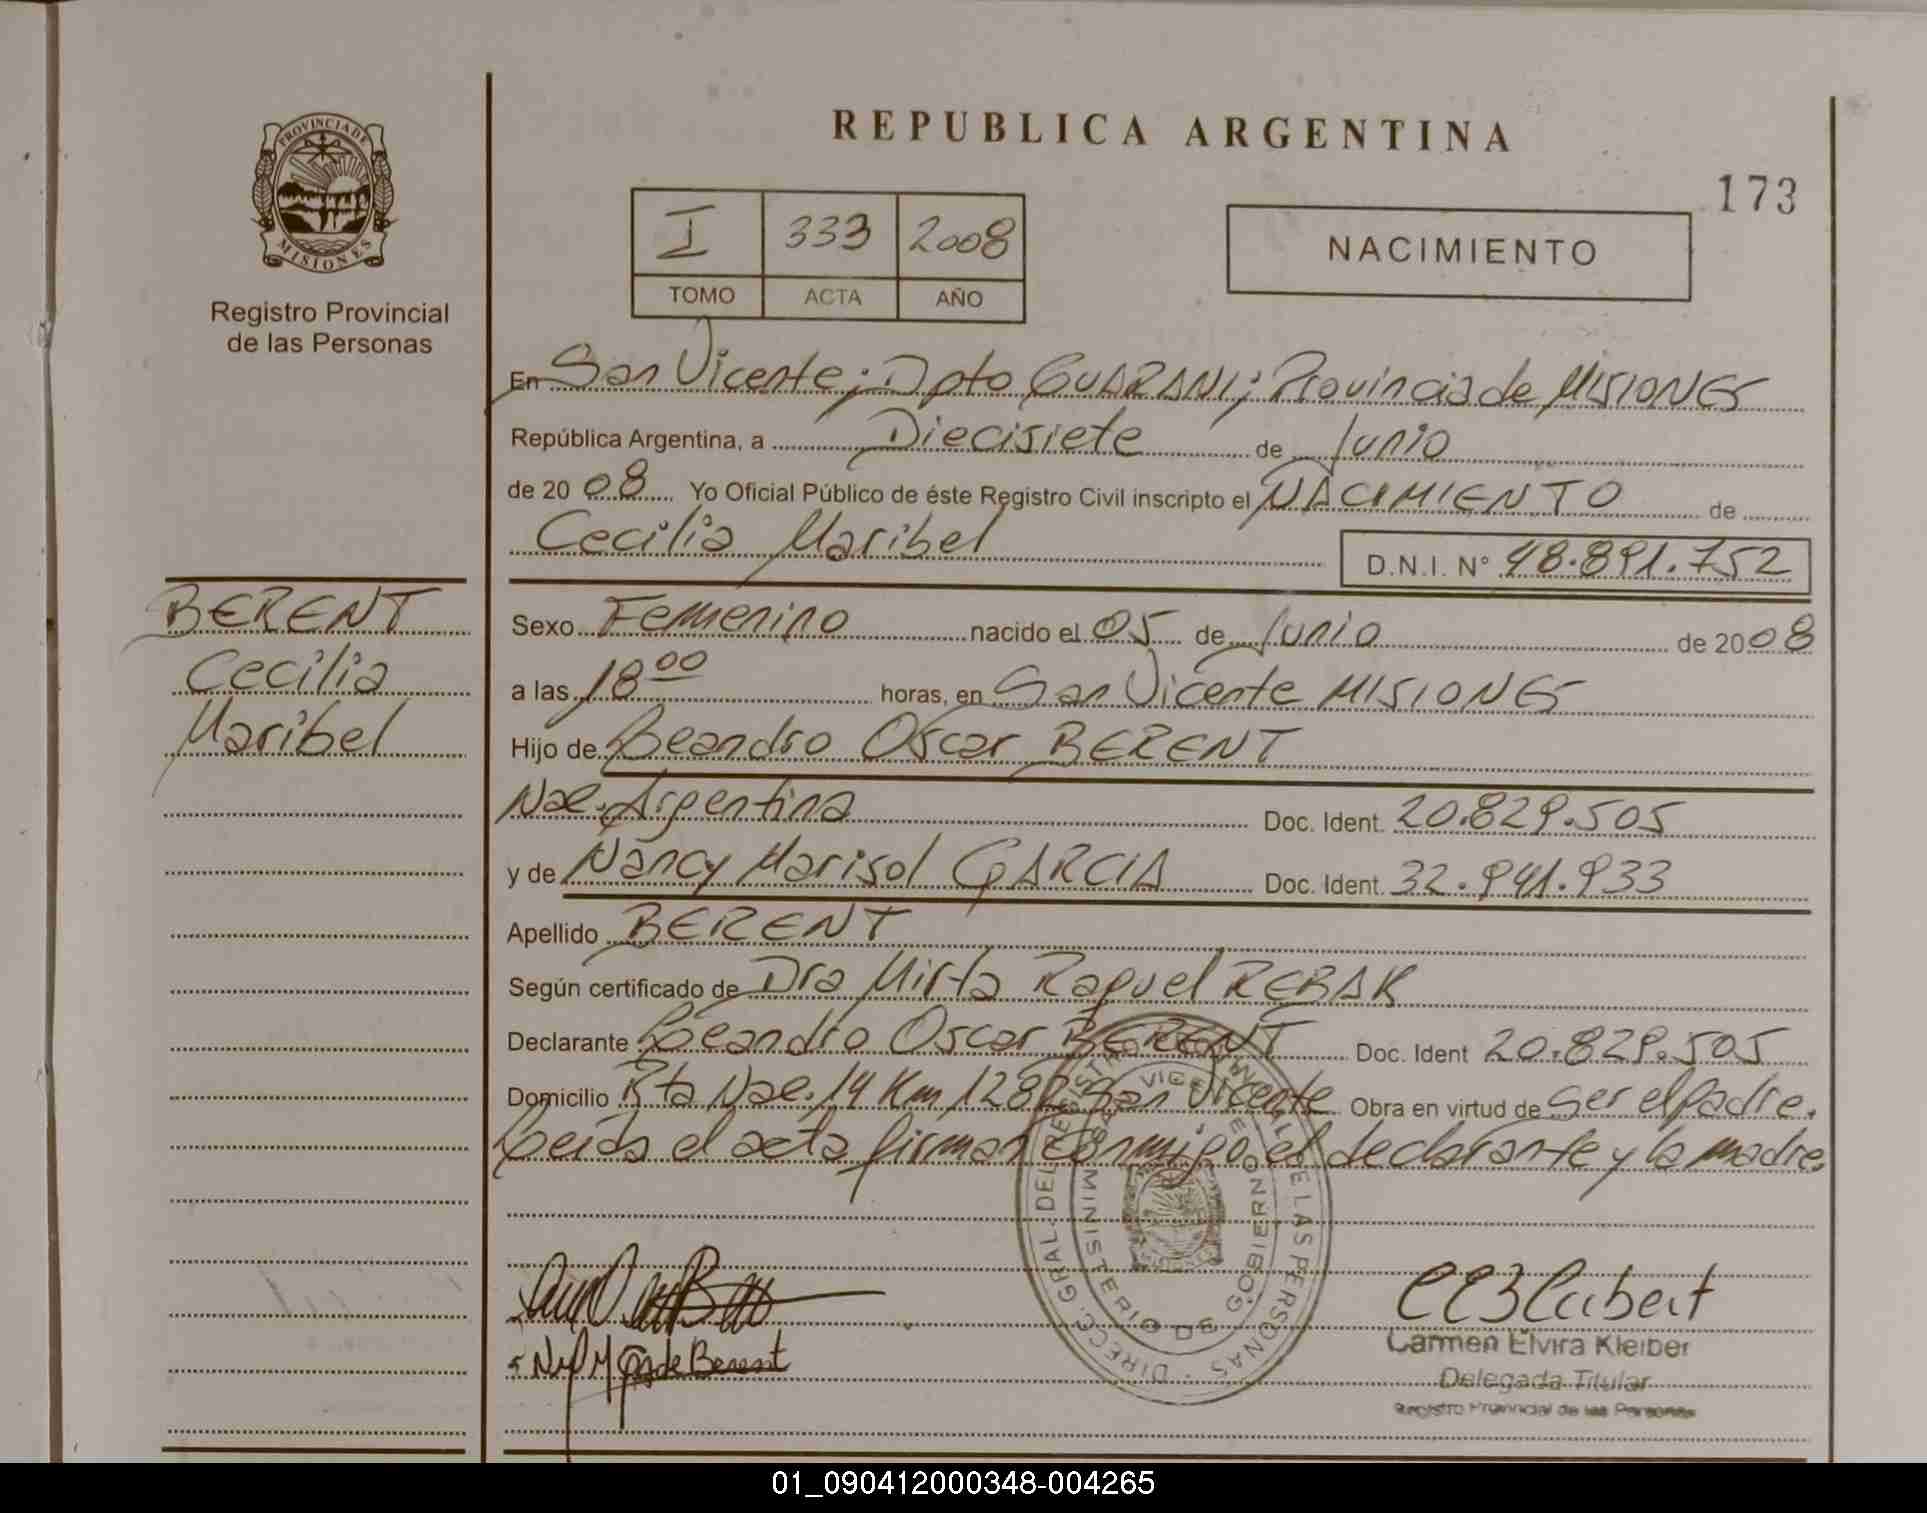 PROVINCIA DE
MISIONES
Registro Provincial
de las Personas
REPUBLICA ARGENTINA
173
I 333 2008
TOMO ACTA AÑO
NACIMIENTO
En San Vicente; Dpto GUARANI; Provincia de MISIONES
República Argentina, a Diecisiete de Junio
de 2008 Yo Oficial Público de éste Registro Civil inscripto el NACIMIENTO de
Cecilia Maribel
D.N.I. N° 48.891.752
BERENT
Cecilia
Maribel
Sexo Femenino nacido el 05 de Junio de 2008
a las 18 00 horas, en San Vicente MISIONES
Hijo de Leandro Oscar BERENT
Nac. Argentina Doc. Ident. 20.829.505
y de Nancy Marisol GARCIA Doc. Ident. 32.941.933
Apellido BERENT
Según certificado de Dra Mirta Raquel REBAK
Declarante Leandro Oscar BERENT Doc. Ident 20.829.505
Domicilio Rta Nac. 14 Km 1282 San Vicente Obra en virtud de ser el padre.
Leida el acta firman conmigo el declarante y la madre.
DIRECC. GRAL. DEL REGISTRO PROVINCIAL DE LAS PERSONAS
SAN VICENTE
MINISTERIO DE GOBIERNO
de Berent
Carmen Elvira Kleiber
Delegada Titular
Registro Provincial de las Personas
01_090412000348-004265